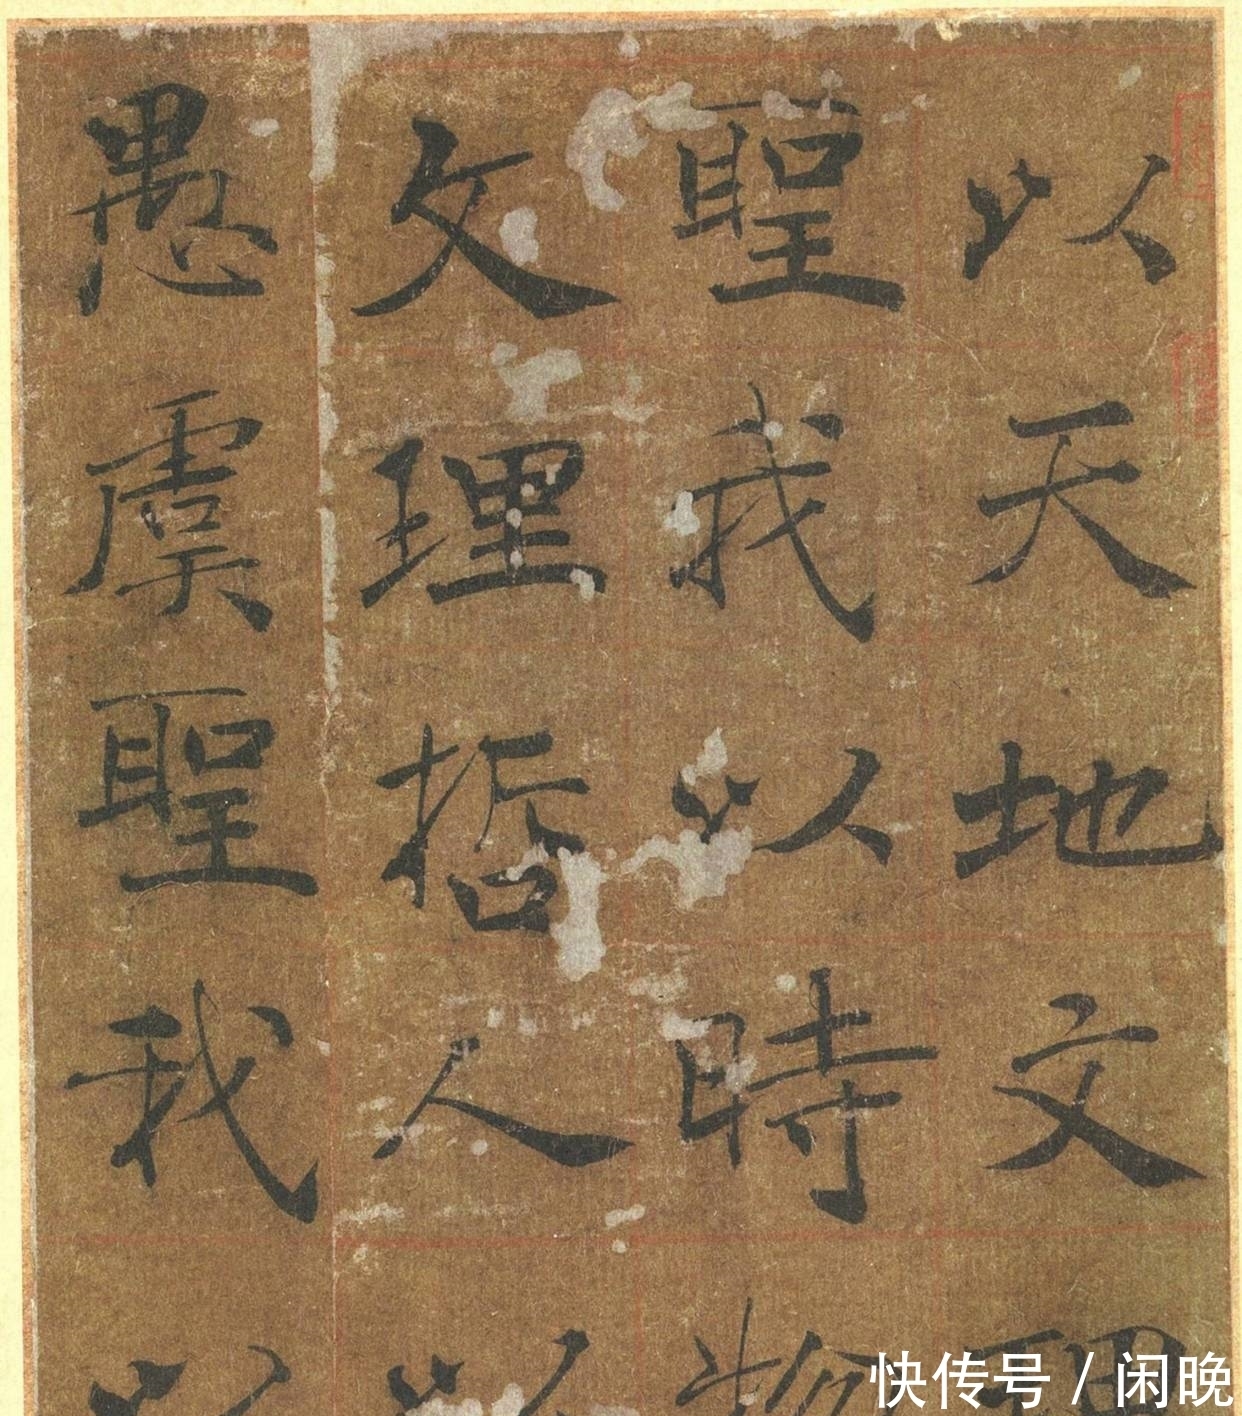 以天地文理
聖我以時物
文理哲人以
愚虞聖我以
快传号 / 闲晚